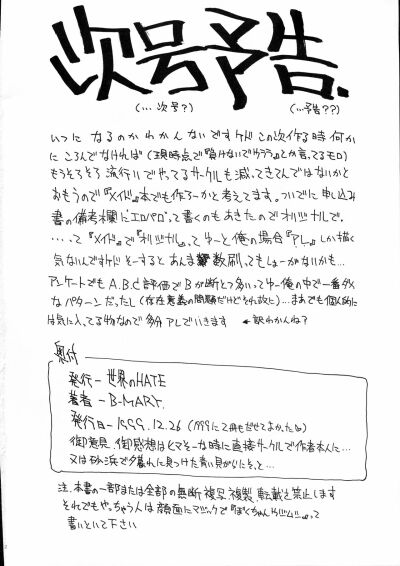 次号予告.
(… 次号?) (…予告??)
いつに なるのかわかんないですケド この次作る時 何か
に ころんでなければ (現時点で
もうそろそろ 流行りでやってるサークルも減ってきてんではないかと
おもうので『メイド』本でも作ろーかと考えてます。ついでに 申し込み
書の備考欄に"エロパロ"って書くのもあきたのでオリジナルで。
…って『メイド』で『オリジナル』って ゆーと俺の場合『アレ』しか描く
気ないんですケド そーすると あんま 数刷ってもしょーがないかも…
アンケートでも A.B.C評価で Bが断とつ多いってゆー俺の中で一番ダメ
なパターンだったし (存在意義の問題だけど それ故に) …まあでも 個人的に
は気に入ってる物なので 多分 アレでいきます ←訳わかんね?
奥付
発行 — 世界のHATE
著者 — B-MARY.
発行日 — 1999.12.26 (1999に二冊も出せてよかったね)
御意見、御感想はヒマそーな時に直接サークルで作者本人に…
又は砂浜で夕暮れに見つけた青い貝がらにそっと…
注. 本書の一部または全部の無断 複写、複製、転載を禁止します
それでもやっちゃう人は 顔面にマジックで『ぼくちゃん って
書いといて下さい